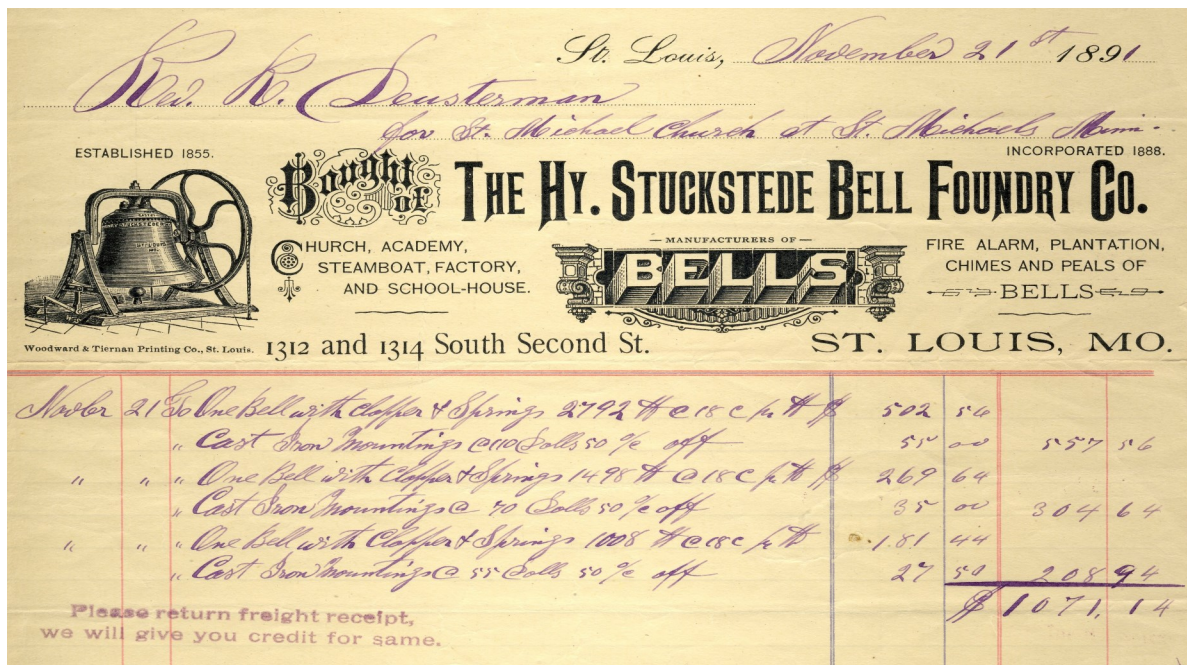 St. Louis, November 21st 1891
Rev. R. Deusterman
for St. Michael Church at St. Michaels Minn.
ESTABLISHED 1855.
INCORPORATED 1888.
Bought of THE HY. STUCKSTEDE BELL FOUNDRY CO.
CHURCH, ACADEMY,
STEAMBOAT, FACTORY,
AND SCHOOL-HOUSE.
— MANUFACTURERS OF —
BELLS
FIRE ALARM, PLANTATION,
CHIMES AND PEALS OF
BELLS
Woodward & Tiernan Printing Co., St. Louis.
1312 and 1314 South Second St.
ST. LOUIS, MO.
Novbr 21 To One Bell with Clapper & Springs 2792 ℔ @ 18 c pr ℔ $ 502 56
" Cast Iron Mountings @ 110 Dolls 50 % off 55 00 557 56
" " " One Bell with Clapper & Springs 1498 ℔ @ 18 c pr ℔ $ 269 64
" Cast Iron Mountings @ 70 Dolls 50 % off 35 00 304 64
" " " One Bell with Clapper & Springs 1008 ℔ @ 18 c pr ℔ 181 44
" Cast Iron Mountings @ 55 Dolls 50 % off 27 50 208 94
$ 1071.14
Please return freight receipt,
we will give you credit for same.